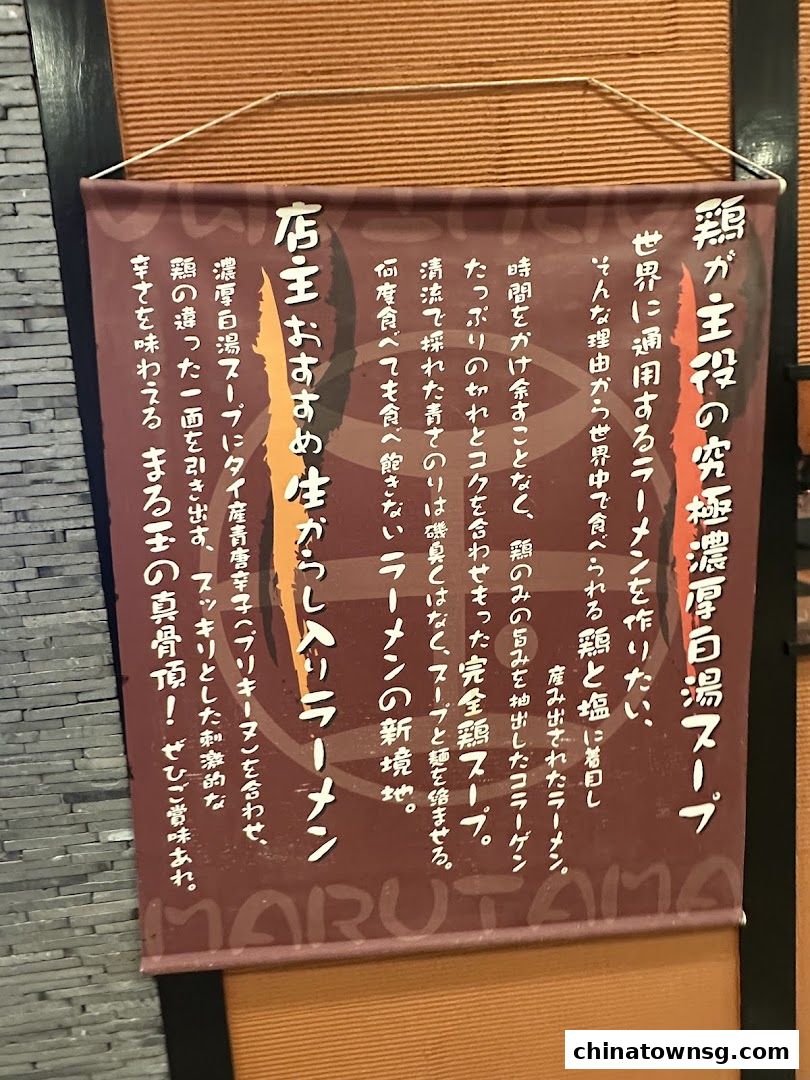 鶏が主役の究極濃厚白湯スープ
世界に通用するラーメンを作りたい、
そんな理由から世界中で食べられる鶏と塩に着目し
産み出されたラーメン。
時間をかけ余すことなく、鶏のみの旨みを抽出したコラーゲン
たっぷりのキレとコクを合わせもった完全鶏スープ。
清流で採れた青さのりは磯臭くはなく、スープと麺を絡ませる。
何度食べても食べ飽きないラーメンの新境地。
店主おすすめ生からし入りラーメン
濃厚白湯スープにタイ産青唐辛子(プリキーヌ)を合わせ、
鶏の違った一面を引き出す、スッキリとした刺激的な
辛さを味わえる まる玉の真骨頂！ぜひご賞味あれ。
MARUTAMA
chinatownsg.com